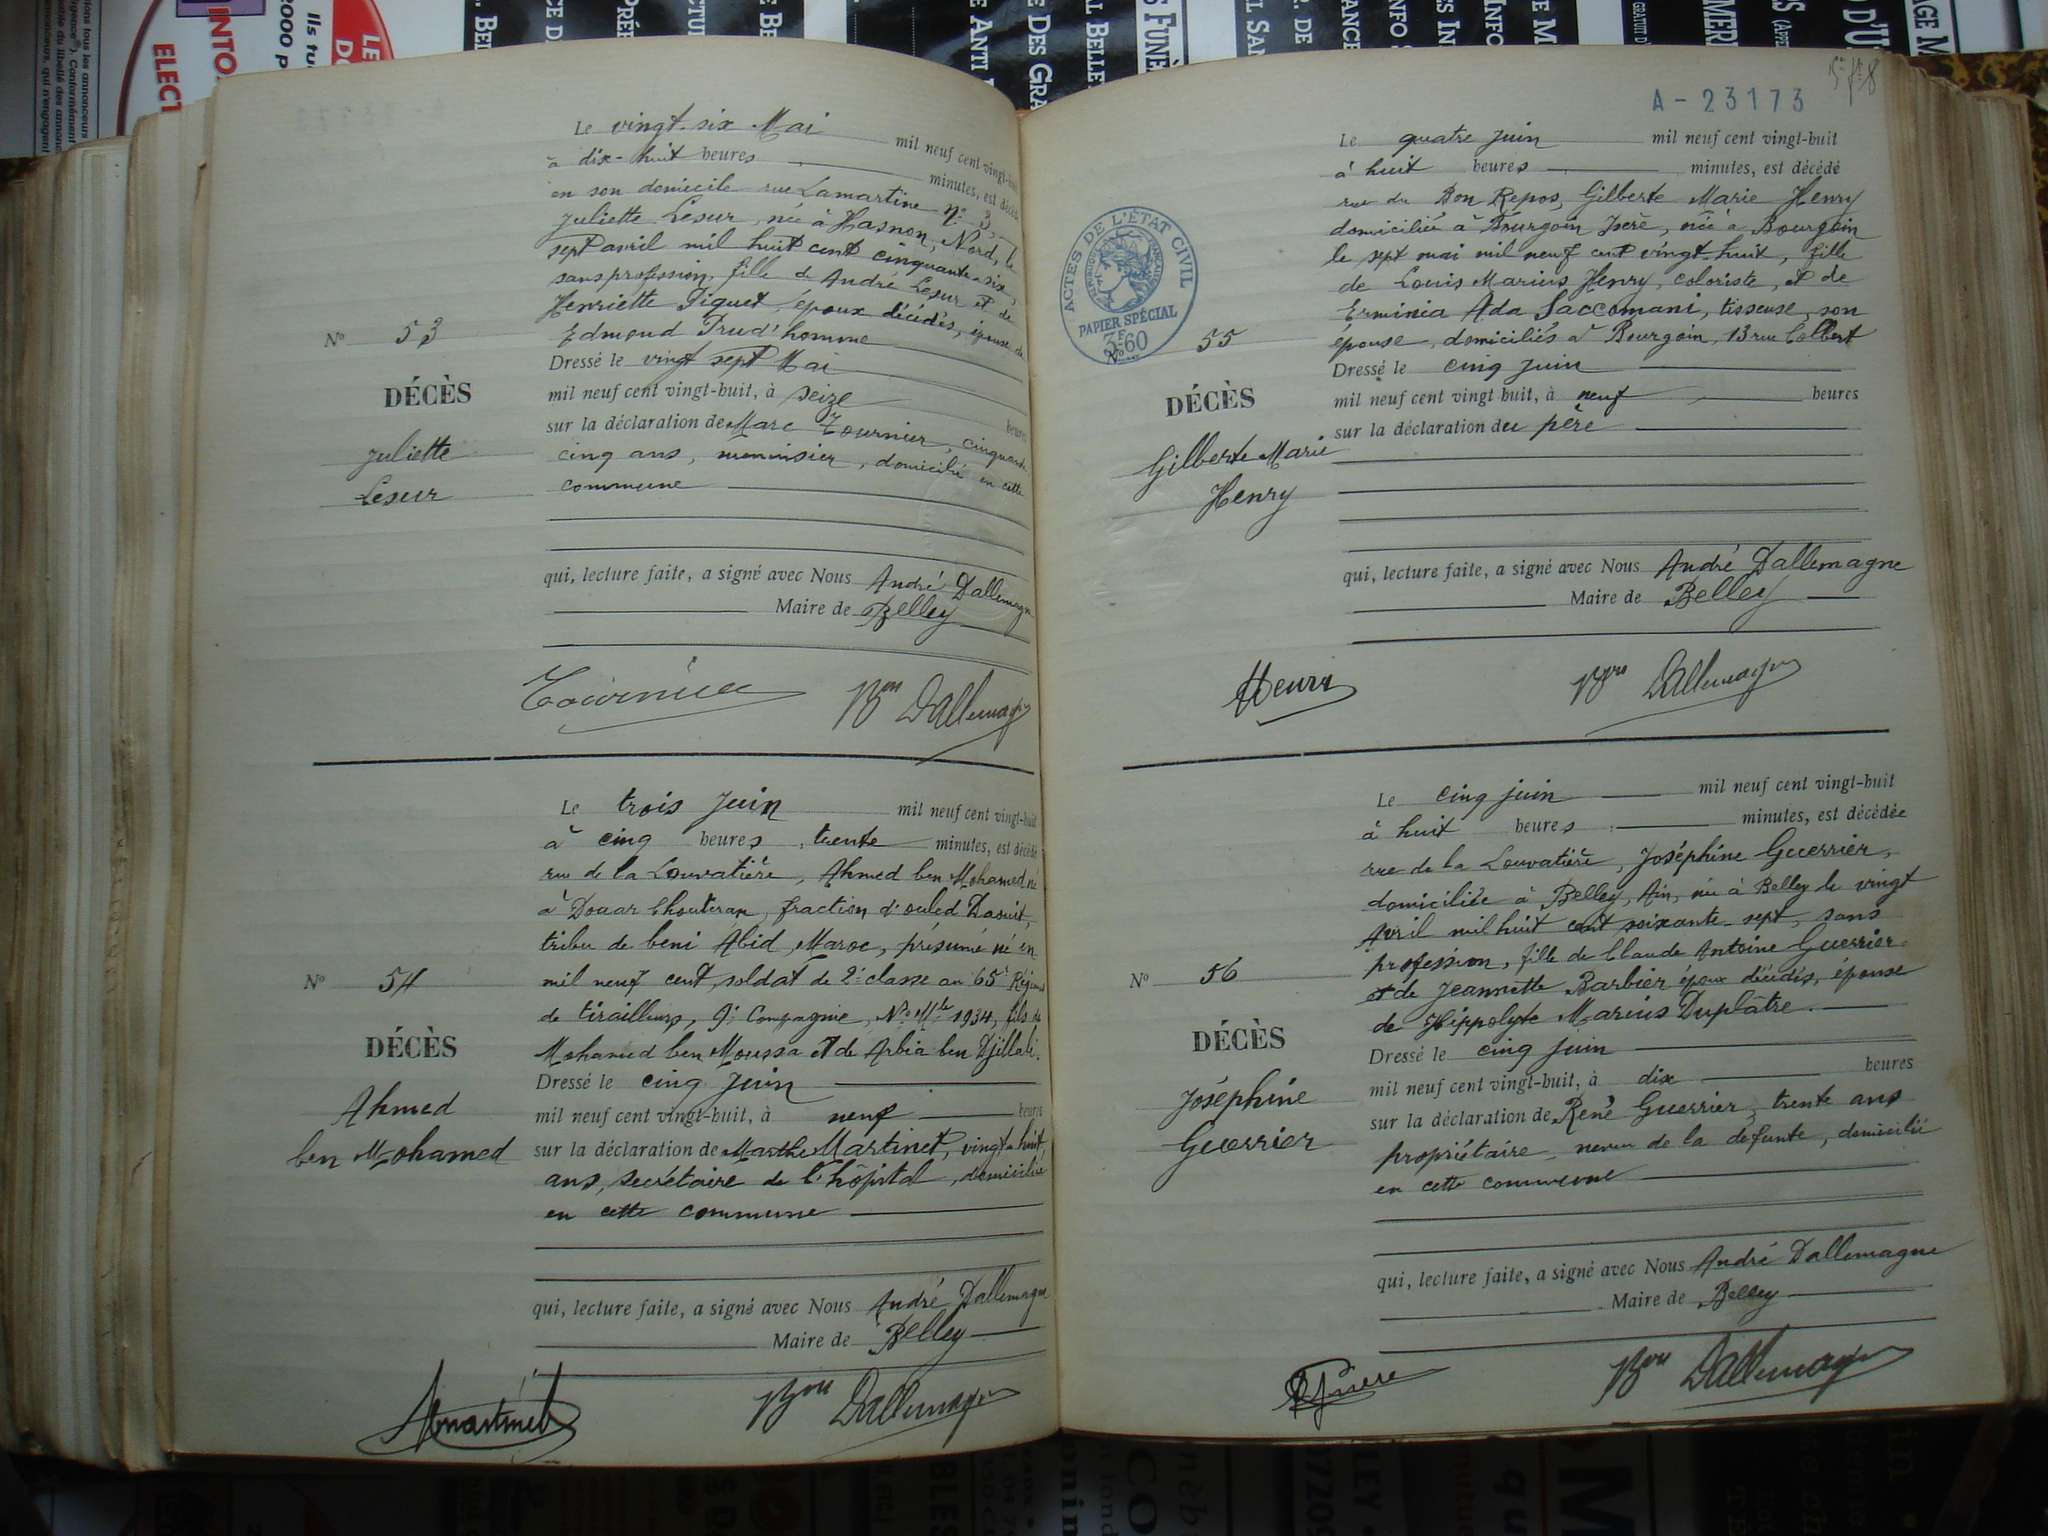 Le vingt-six Mai mil neuf cent vingt-huit
à dix-huit heures minutes, est décédé
en son domicile rue Lamartine n° 3,
Juliette Lesur, née à Hasnon, Nord, le
sept avril mil huit cent cinquante-six,
sans profession, fille de André Lesur et de
Henriette Piquet, époux décédés, épouse de
Edmond Prud'homme
Dressé le vingt sept Mai
mil neuf cent vingt-huit, à seize heures
sur la déclaration de Marc Tournier, cinquante
cinq ans, menuisier, domicilié en cette
commune
N° 53
DÉCÈS
Juliette
Lesur
qui, lecture faite, a signé avec Nous André Dallemagne
Maire de Belley
Tournier Bon Dallemagne
Le trois Juin mil neuf cent vingt-huit
à cinq heures, trente minutes, est décédé
rue de la Louvatière, Ahmed ben Mohamed né
à Douar Chouteran, fraction d'ouled Daouit,
tribu de beni Abid, Maroc, présumé né en
mil neuf cent, soldat de 2e classe au 65e Régiment
de tirailleurs, 9e Compagnie, N° Mle 1934, fils de
Mohamed ben Moussa et de Arbia ben Djillali.
Dressé le cinq Juin
mil neuf cent vingt-huit, à neuf heures
sur la déclaration de Marthe Martinet, vingt-huit
ans, secrétaire de l'hôpital, domiciliée
en cette commune
N° 54
DÉCÈS
Ahmed
ben Mohamed
qui, lecture faite, a signé avec Nous André Dallemagne
Maire de Belley
Martinet Bon Dallemagne
A-23173
Le quatre juin mil neuf cent vingt-huit
à huit heures minutes, est décédé
rue du Bon Repos, Gilberte Marie Henry
domiciliée à Bourgoin Isère, née à Bourgoin
le sept mai mil neuf cent vingt-huit, fille
de Louis Marius Henry, coloriste, et de
Erminia Ada Saccomani, tisseuse, son
épouse, domiciliés à Bourgoin, 13 rue Colbert
Dressé le cinq juin
mil neuf cent vingt huit, à neuf heures
sur la déclaration du père
ACTES DE L'ÉTAT CIVIL
PAPIER SPÉCIAL
3F60
N° 55
DÉCÈS
Gilberte Marie
Henry
qui, lecture faite, a signé avec Nous André Dallemagne
Maire de Belley
Henry Bon Dallemagne
Le cinq juin mil neuf cent vingt-huit
à huit heures minutes, est décédée
rue de la Louvatière, Joséphine Guerrier,
domiciliée à Belley, Ain, née à Belley le vingt
Avril mil huit cent soixante-sept, sans
profession, fille de Claude Antoine Guerrier
et de Jeannette Barbier époux décédés, épouse
de Hippolyte Marius Duplâtre.
Dressé le cinq juin
mil neuf cent vingt-huit, à dix heures
sur la déclaration de René Guerrier, trente ans
propriétaire, neveu de la défunte, domicilié
en cette commune
N° 56
DÉCÈS
Joséphine
Guerrier
qui, lecture faite, a signé avec Nous André Dallemagne
Maire de Belley
Bon Dallemagne